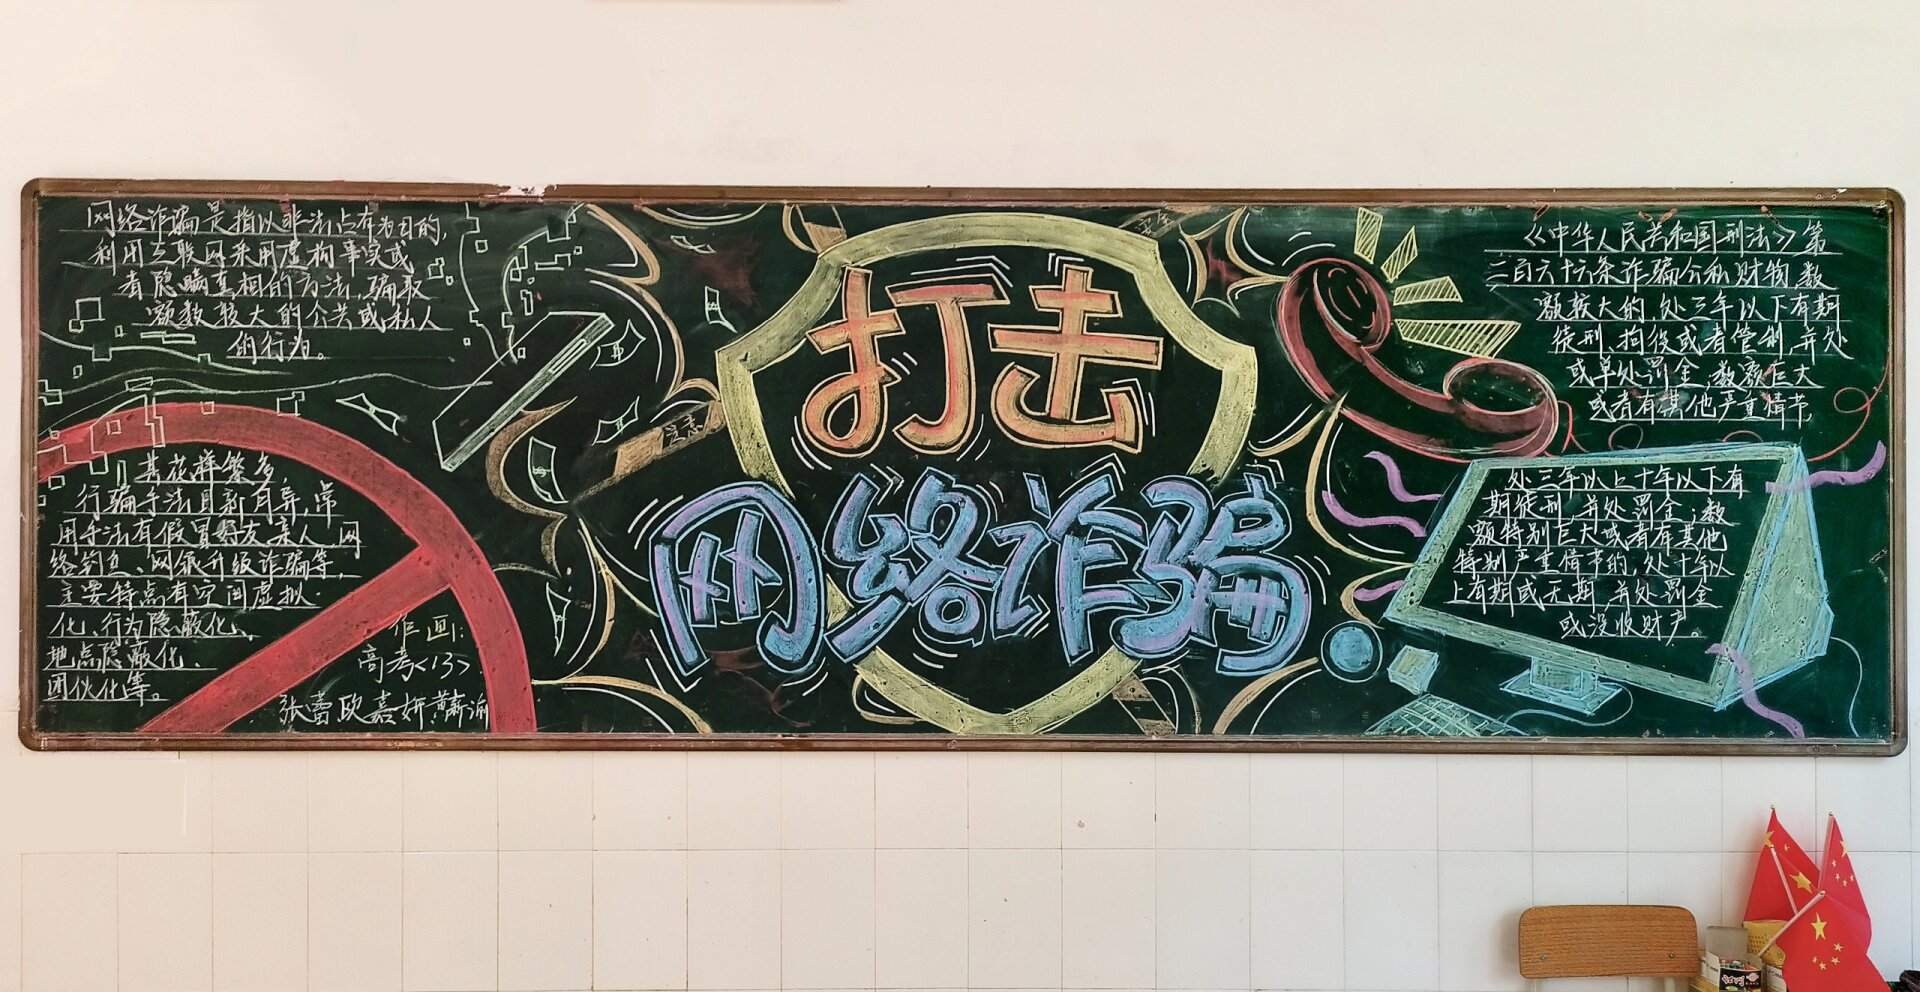 网络诈骗是指以非法占有为目的,
利用互联网采用虚构事实或
者隐瞒真相的方法,骗取
额数较大的公共或私人
的行为。
其花样繁多,
行骗手法日新月异,常
用手法有假冒好友亲人、网
络钓鱼、网银升级诈骗等,
主要特点有空间虚拟
化、行为隐蔽化、
地点隐蔽化、
团伙化等。
作画:
高考<13>
张蕾 欧嘉妍
注意
安全
打击
网络诈骗
《中华人民共和国刑法》第
二百六十六条诈骗公私财物,数
额较大的,处三年以下有期
徒刑、拘役或者管制,并处
或单处罚金,数额巨大
或者有其他严重情节,
处三年以上十年以下有
期徒刑,并处罚金;数
额特别巨大或者有其他
特别严重情节的,处十年以
上有期或无期,并处罚金
或没收财产。